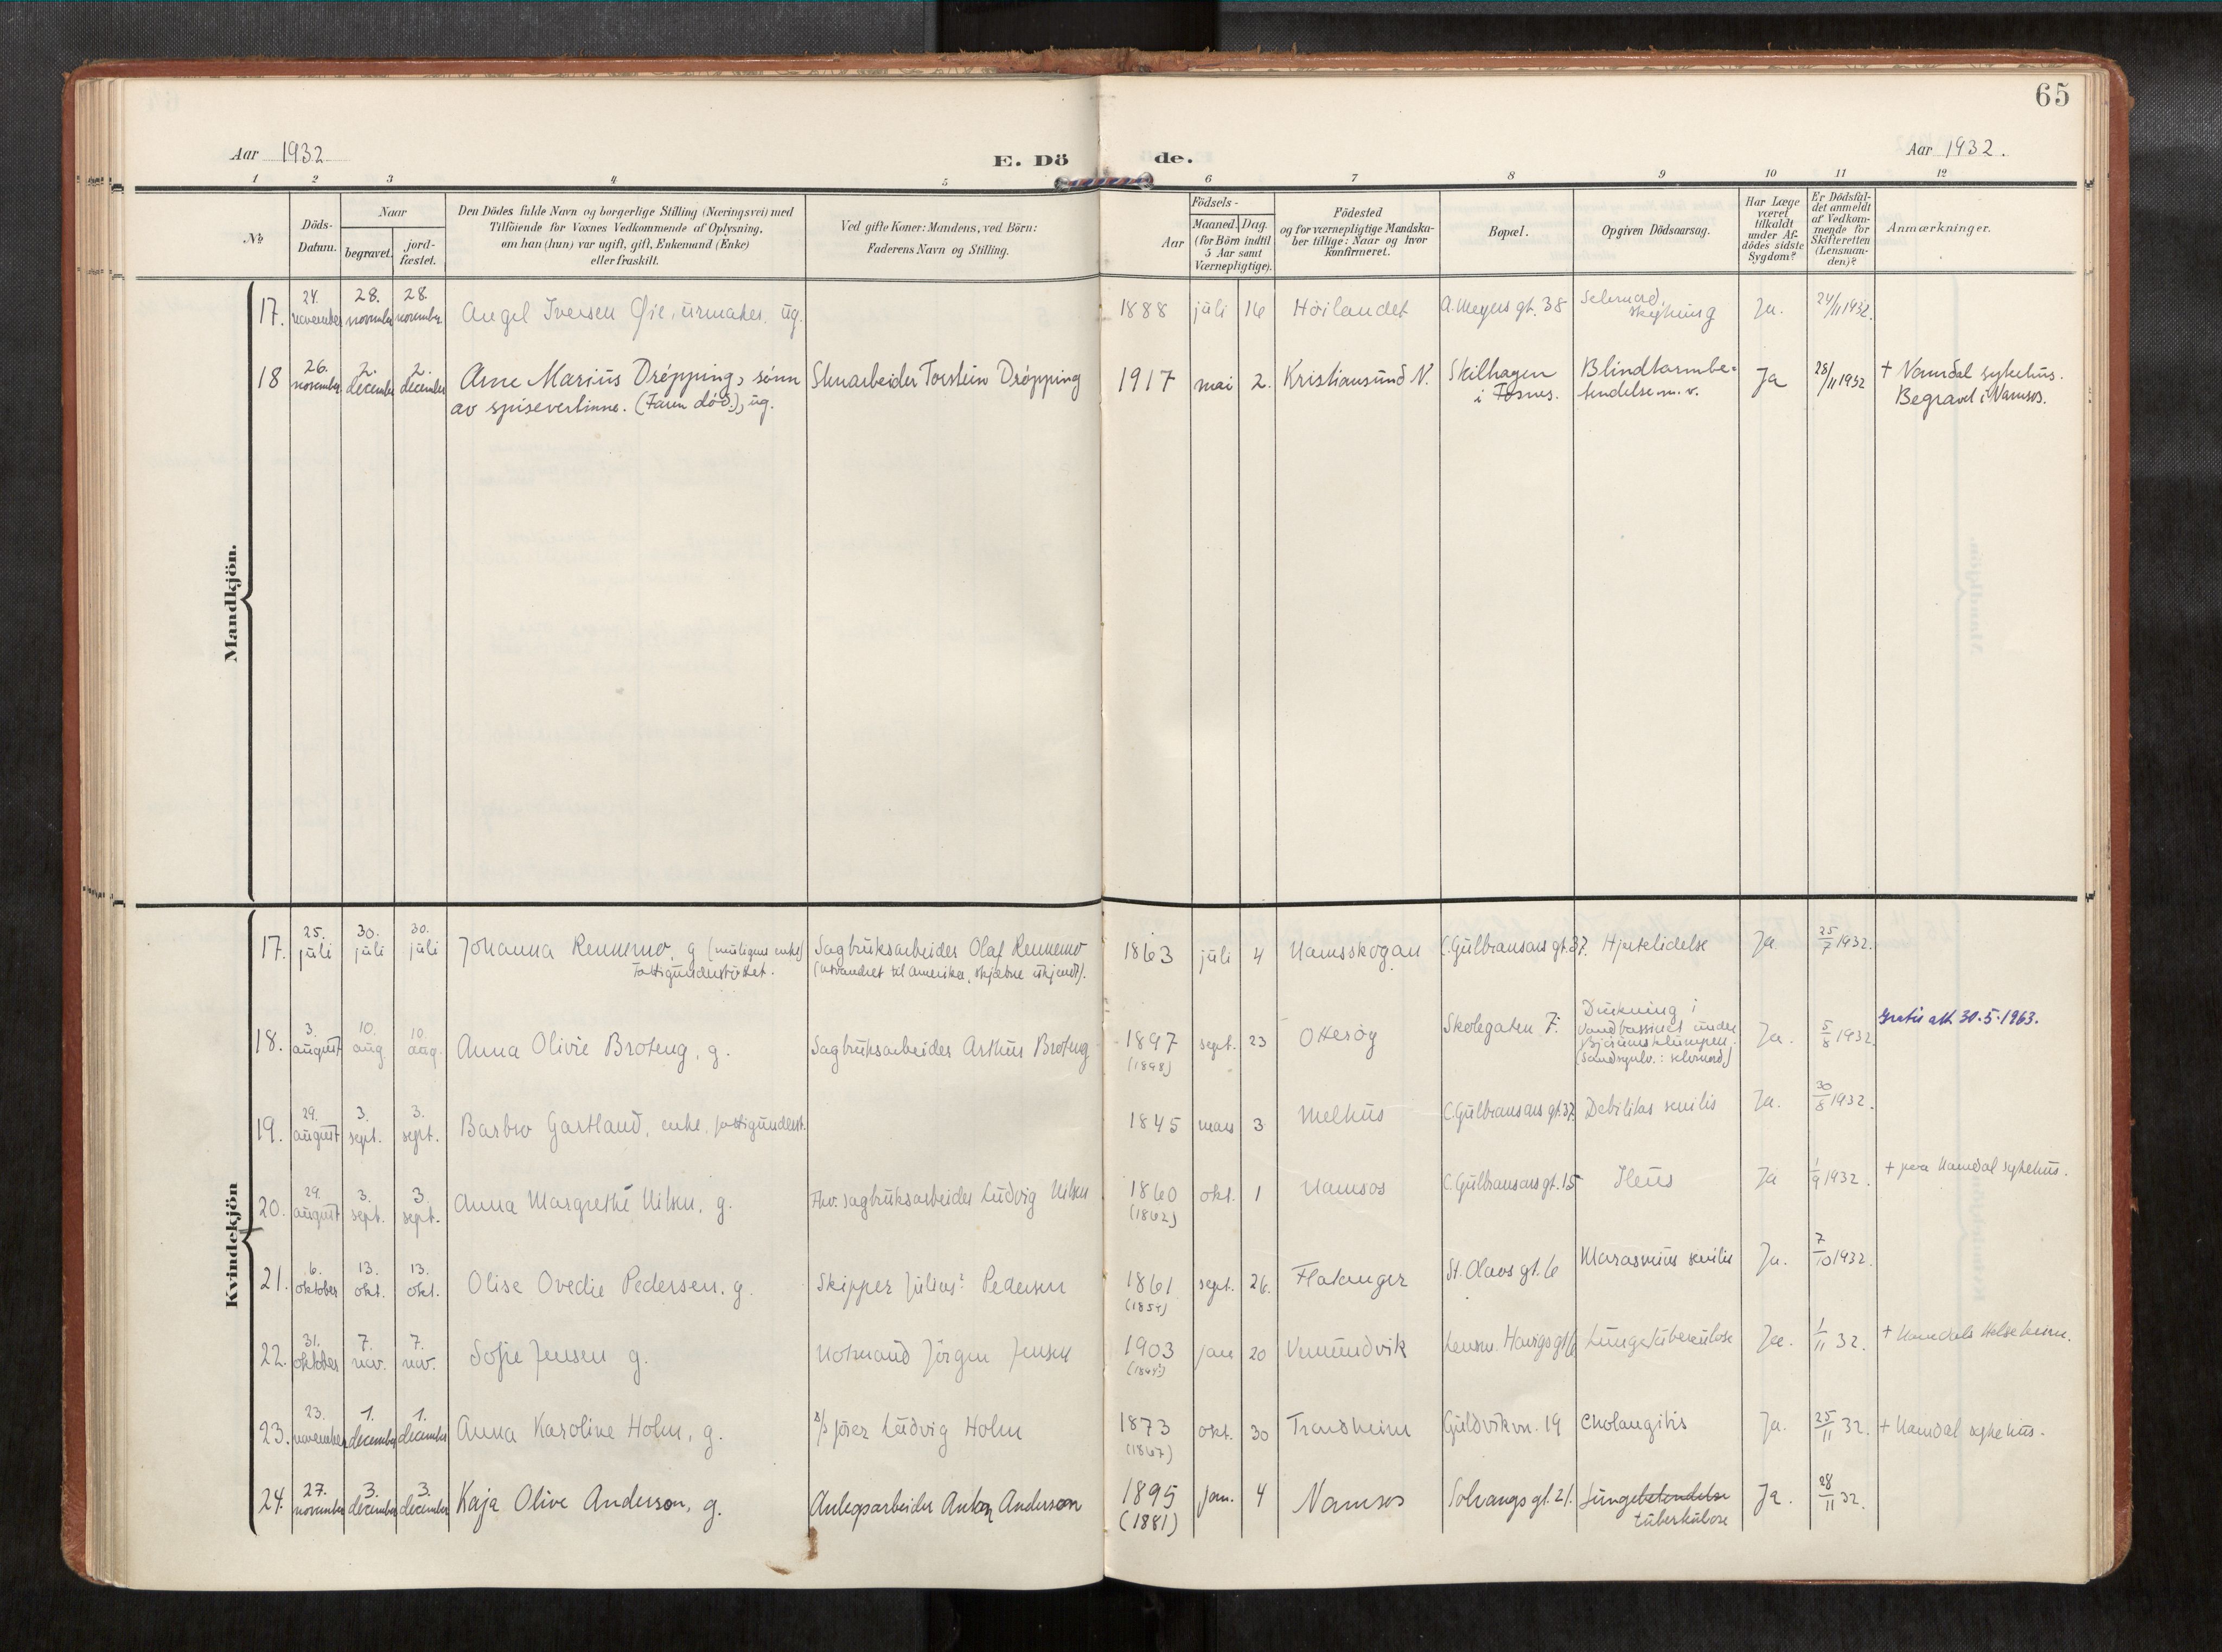 65
Aar 1932
E. Dö de.
Aar 1932.
1 2 3 4 5 6 7 8 9 10 11 12
№
Döds-
Datum.
Naar
begravet.
jord-
fæstet.
Den Dödes fulde Navn og borgerlige Stilling (Næringsvei) med
Tilföiende for Voxnes Vedkommende af Oplysning,
om han (hun) var ugift, gift, Enkemand (Enke)
eller fraskilt.
Ved gifte Koner: Mandens, ved Börn:
Faderens Navn og Stilling.
Födsels-
Aar
Maaned.
Dag.
(for Börn indtil
5 Aar samt
Værnepligtige).
Födested
og for værnepligtige Mandska-
ber tillige: Naar og hvor
konfirmeret.
Bopæl.
Opgiven Dödsaarsag.
Har Læge
været
tilkaldt
under Af-
dödes sidste
Sygdom?
Er Dödsfal-
det anmeldt
af Vedkom-
mende for
Skifteretten
(Lensman-
den)?
Anmærkninger.
Mandkjön.
17. 24. november 28. november 28. november Angel Iversen Øie, urmaker, ug. 1888 juli 16 Höilandet A. Meyers gt. 38 Selvmord, Ja. 24/11 1932.
18 26. november 2. december 2. december Arne Marius Dröpping, sönn Torstein Dröpping 1917 mai 2. Kristiansund N. Skilhagen Blindtarmbe- Ja 28/11 1932 + Namdal sykehus.
av spisevertinne. (Faren död.), ug. i Fosnes. tendelse m. v. Begravet i Namsos.
Kvindekjön
17. 25. juli 30. juli 30. juli Johanna Rennemo, g (muligens enke) Sagbruksarbeider Olaf Rennemo 1863 juli 4 Namsskogan C. Gulbransons gt. 37. Hjertelidelse Ja 25/7 1932.
fattigunderstöttet. (utvandret til Amerika, skjæbne ukjendt).
18. 3. august 10. aug. 10. aug. Anna Olivie Broteng, g. Sagbruksarbeider Arthur Broteng 1897 (1898) sept. 23 Otteröy Skolegaten 7. Drukning i
vandbassinet under
Björumsklumpen.
(Sandsynlv.: selvmord) Ja. 5/8 1932. Gratis att. 30.5.1963.
19. 29. august 3. sept. 3. sept. Barbro Gartland, enke, fattigunderst. 1845 mars 3 Melhus C. Gulbransons gt. 37. Debilitas senilis Ja. 30/8 1932.
20. 29. august 3. sept. 3. sept. Anna Margrethe Nilsen, g. Fhv. sagbruksarbeider Ludvig Nilsen 1860 (1862) okt. 1 Namsos C. Gulbransons gt. 15 Ileus Ja 1/9 1932. + paa Namdal sykehus.
21. 6. oktober 13. okt. 13. okt. Olise Ovedie Pedersen, g. Skipper Julius? Pedersen 1861 (1854) sept. 26. Flatanger St. Olavs gt. 6 Marasmus senilis Ja. 7/10 1932.
22. 31. oktober 7. nov. 7. nov. Sofie Jensen g. Jörgen Jensen 1903 jan 20 Vemundvik Lungetuberkulose Ja. 1/11 32. + Namdals Helseheim.
23. 23. november 1. december 1. december Anna Karoline Holm, g. Ludvig Holm 1873 (1867) okt. 30 Trondheim Guldvikvn. 19 Cholangitis Ja. 25/11 32. + Namdal sykehus.
24. 27. november 3. december 3. december Kaja Olive Anderson, g. Anlegsarbeider Anton Anderson 1895 (1881) jan. 4 Namsos Solvangs gt. 21. Lungebetendelse Ja. 28/11 32.
tuberkulose